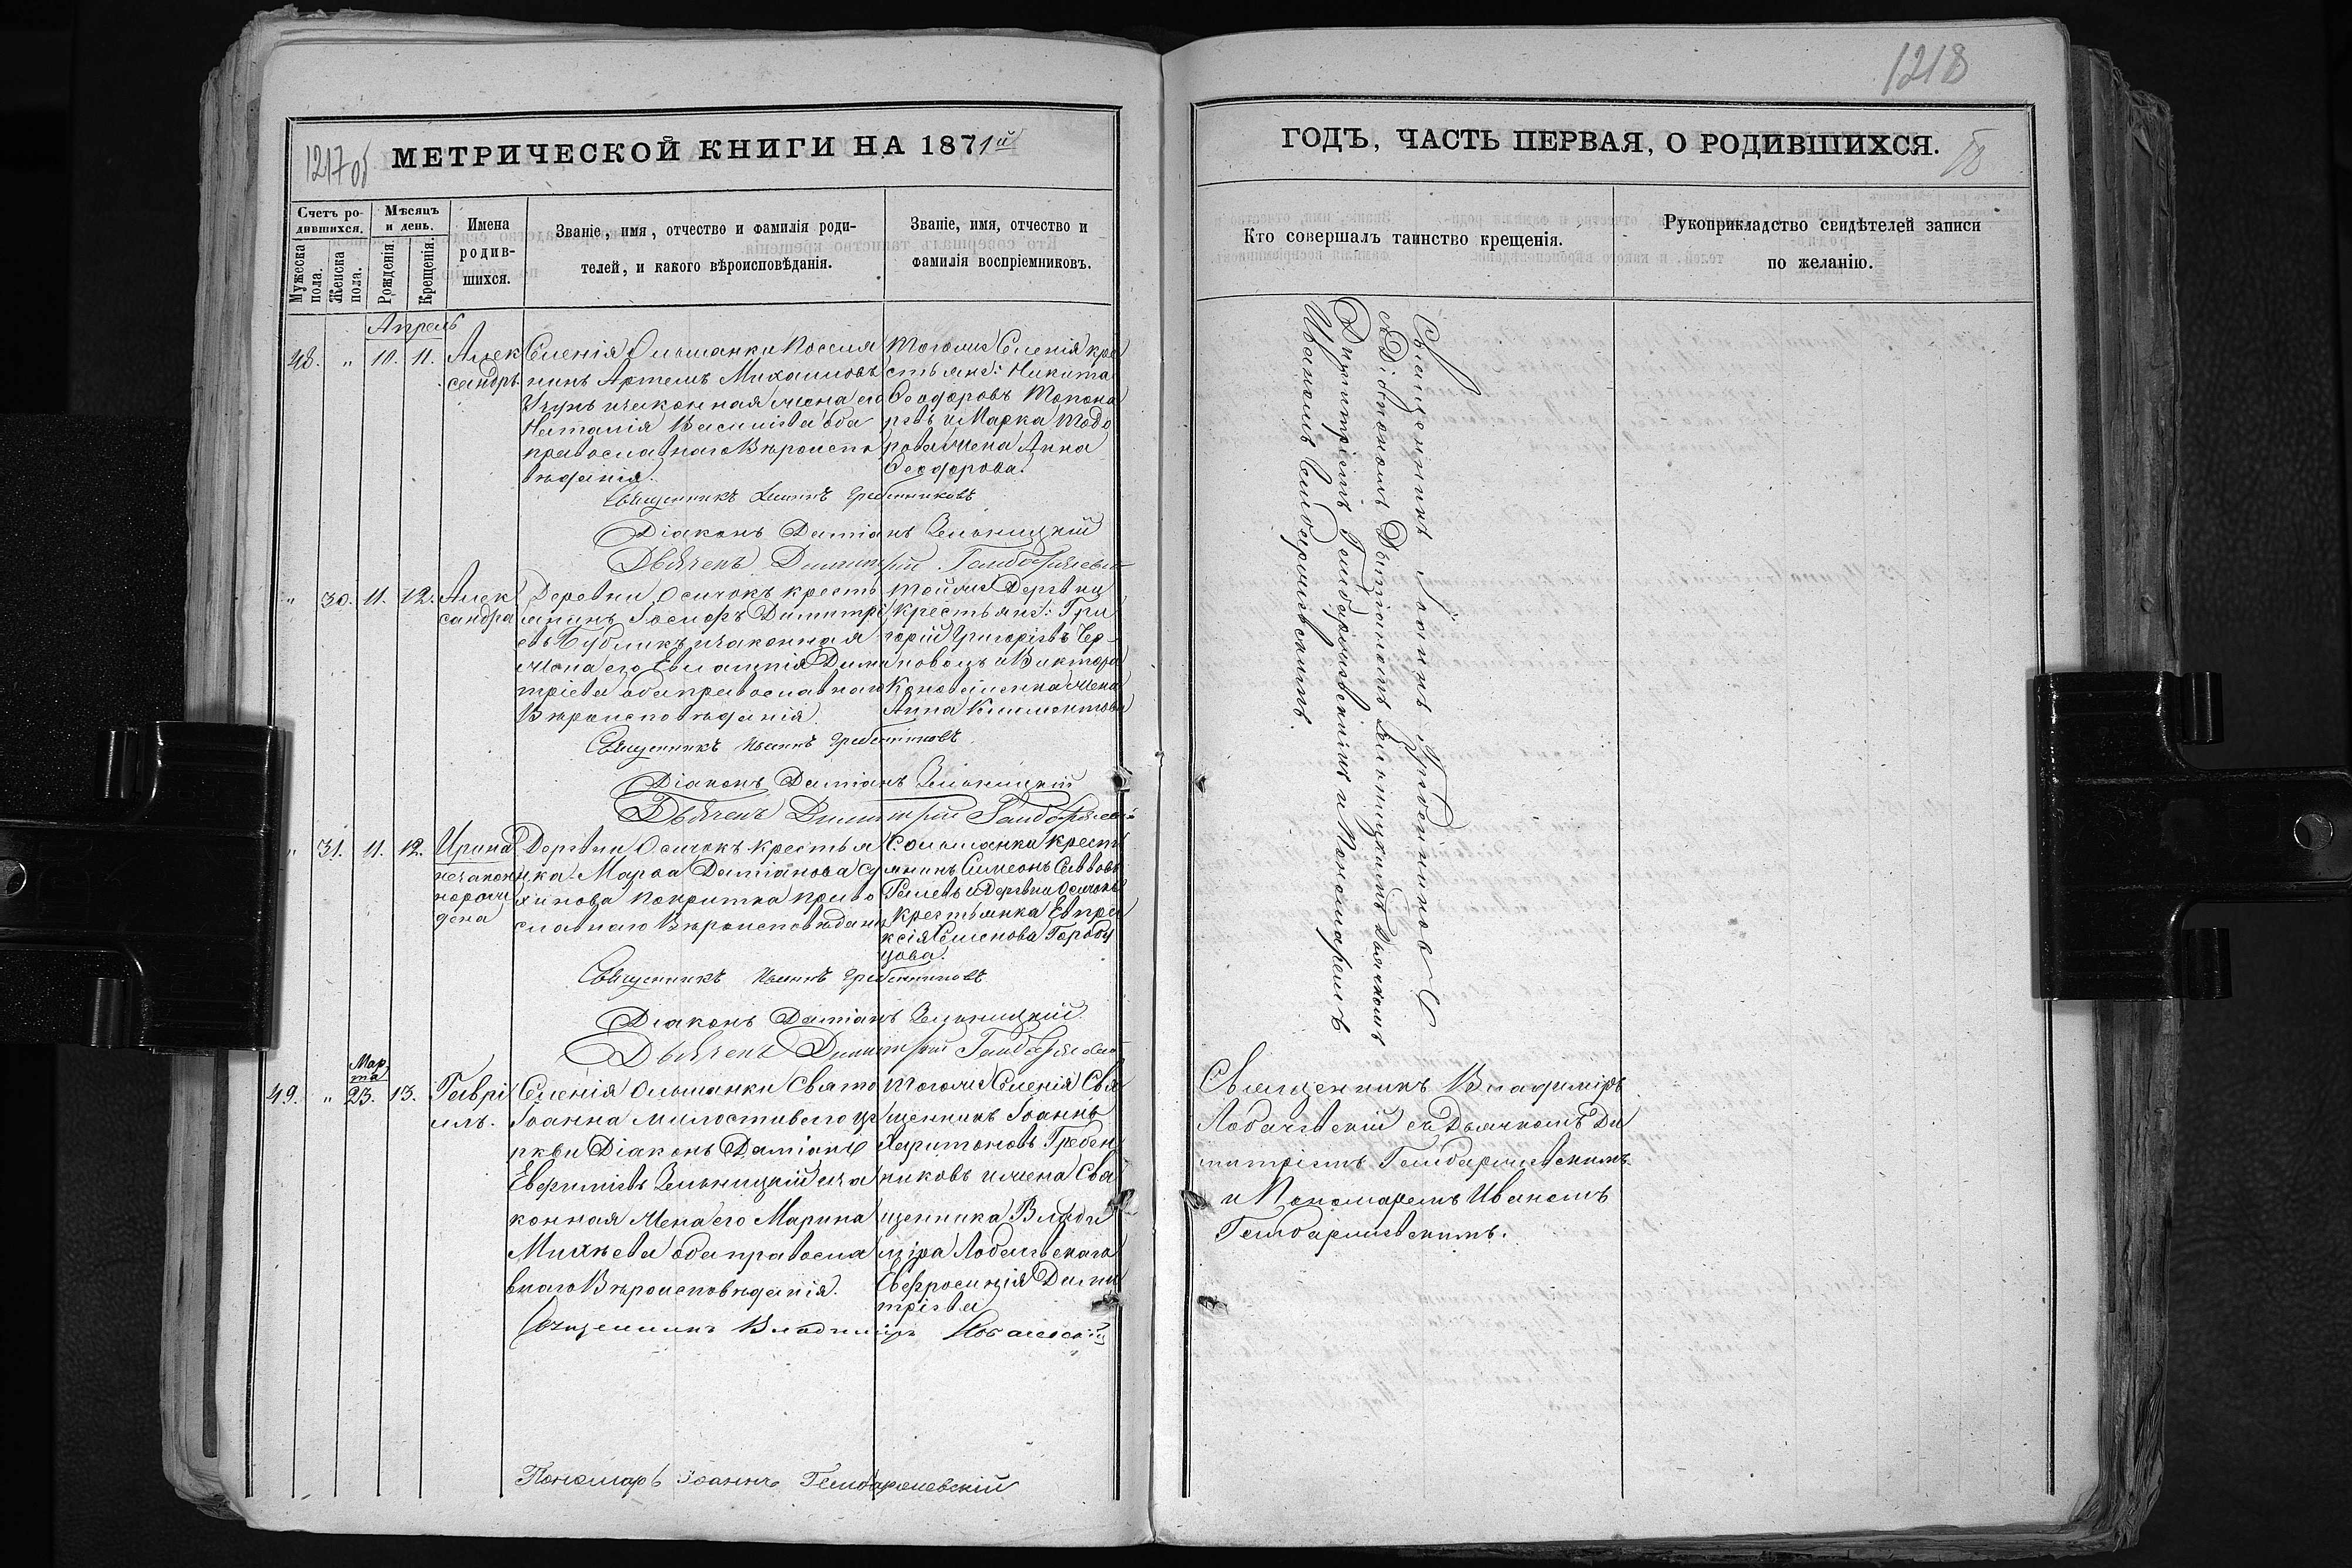 1217 об
МЕТРИЧЕСКОЙ КНИГИ НА 1871й
Счетъ ро-
дившихся.
Мужеска
пола.
Женска
пола.
Мѣсяцъ
и день.
Рожденія.
Крещенія.
Имена
родив-
шихся.
Званіе, имя, отчество и фамилія роди-
телей, и какого вѣроисповѣданія.
Званіе, имя, отчество и
фамилія воспріемниковъ.
Апрель
48. " 10. 11.
Алек
сандръ
Селенія Ольшанки
нинъ Артемъ Михаиловъ
и законная жена его
Наталія Василіева оба
православнаго Вѣроиспо
вѣданія.
Тогоже Селенія кре
стьяне: Никита
Ѳеодоровъ Топона
ревъ и Марка Тодо
рова жена Анна
Ѳеодорова.
Священникъ Іоаннъ Гребенниковъ
Діаконъ Даміанъ Зельницкій
Дьячекъ Димитрій Гандабриловъ
" 30. 11. 12.
Алек
сандра
Деревни Осичокъ кресть
янинъ Іосифъ Димитрі
евъ Бубликъ и законная
жена его Евлампія Дими
тріева оба православнаго
Вѣроисповѣданія.
Тойже Деревни
Крестьяне: Гри
горій Григоріевъ Чер
новолъ и Виктора
жена
Анна Климентова
Священникъ Іоаннъ Гребенниковъ
Діаконъ Даміанъ Зельницкій
Дьячекъ Димитрій
" 31. 11. 12.
Ирина
незакон
норож
дена
Деревни Осичокъ крестья
нка Марѳа Даміанова Су
хинова покритка право
славнаго Вѣроисповѣданія
С Ольшанки крест
янинъ Симеонъ Саввовъ
и Деревни Осичокъ
Крестьянка Евпра
ксія Семенова Горобц
цова.
Священникъ Іоаннъ Гребенниковъ
Діаконъ Даміанъ Зельницкій
Дьячекъ Димитрій
Мар
та
49. " 23. 13.
Гаврі
илъ.
Селенія Ольшанки Свято
Іоанна Милостиваго це
ркви Діаконъ Даміанъ
Зельницкій и за
конная жена его Марина
Михѣева оба правосла
внаго Вѣроисповѣданія.
Тогоже Селенія Свя
щенникъ Іоаннъ
Харитоновъ Гребен
никовъ и жена Свя
щенника Влади
міра Лобачевскаго
Евфросинія Дими
тріева
Священникъ Владиміръ Лобачевскій
Пономарь Іоаннъ
1218
ГОДЪ, ЧАСТЬ ПЕРВАЯ, О РОДИВШИХСЯ.
Кто совершалъ таинство крещенія.
Рукоприкладство свидѣтелей записи
по желанію.
Священникъ Іоаннъ Гребенниковъ
съ Діакономъ Даміаномъ Зельницкимъ Дьячкомъ
Димитріемъ и Пономаремъ
Иваномъ
Священникъ Владиміръ
Лобачевскій съ Дьячкомъ Ди
митріемъ
и Пономаремъ Иваномъ